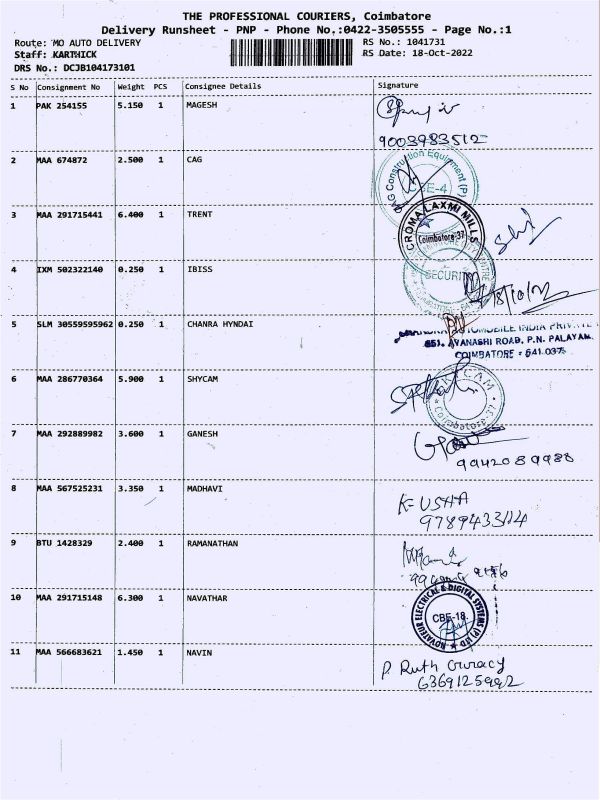 THE PROFESSIONAL COURIERS, Coimbatore
Delivery Runsheet - PNP - Phone No.:0422-3505555 - Page No.:1
Route: MO AUTO DELIVERY RS No.: 1041731
Staff: KARTHICK RS Date: 18-Oct-2022
DRS No.: DCJB104173101
S No Consignment No Weight PCS Consignee Details Signature
1 PAK 254155 5.150 1 MAGESH
9003983512
2 MAA 674872 2.500 1 CAG
CAG Construction Equipment (P)
CBE-4
3 MAA 291715441 6.400 1 TRENT
CROMA LAXMI MILLS
Coimbatore-37
4 IXM 502322140 0.250 1 IBISS
SECURITY
18/10/22
5 SLM 30559595962 0.250 1 CHANRA HYNDAI
CHANDRA AUTOMOBILE INDIA PRIVATE
651, AVANASHI ROAD, P.N. PALAYAM,
COIMBATORE - 641 037.
6 MAA 286770364 5.900 1 SHYCAM
Coimbatore-37
7 MAA 292889982 3.600 1 GANESH
9942089988
8 MAA 567525231 3.350 1 MADHAVI
K-USHA
9789433114
9 BTU 1428329 2.400 1 RAMANATHAN
10 MAA 291715148 6.300 1 NAVATHAR
NOVATEUR ELECTRICAL & DIGITAL SYSTEMS (P) LTD
CBE-18
11 MAA 566683621 1.450 1 NAVIN
P. Ruth
6369125992